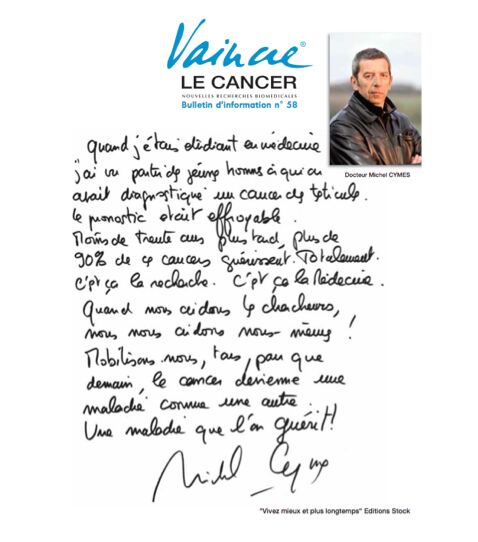 Vaincre®
LE CANCER
NOUVELLES RECHERCHES BIOMEDICALES
Bulletin d'information n° 58
Docteur Michel CYMES
Quand j'étais étudiant en médecine
j'ai vu partir de jeunes hommes à qui on
avait diagnostiqué un cancer des testicules.
Le pronostic était effroyable.
Moins de trente ans plus tard, plus de
90% de ces cancers guérissent. Totalement.
C'est ça la recherche. C'est ça la Médecine.
Quand nous aidons les chercheurs,
nous nous aidons nous-mêmes !
Mobilisons-nous, tous, pour que
demain, le cancer devienne une
maladie comme une autre.
Une maladie que l'on guérit !
Michel Cymes
"Vivez mieux et plus longtemps" Editions Stock